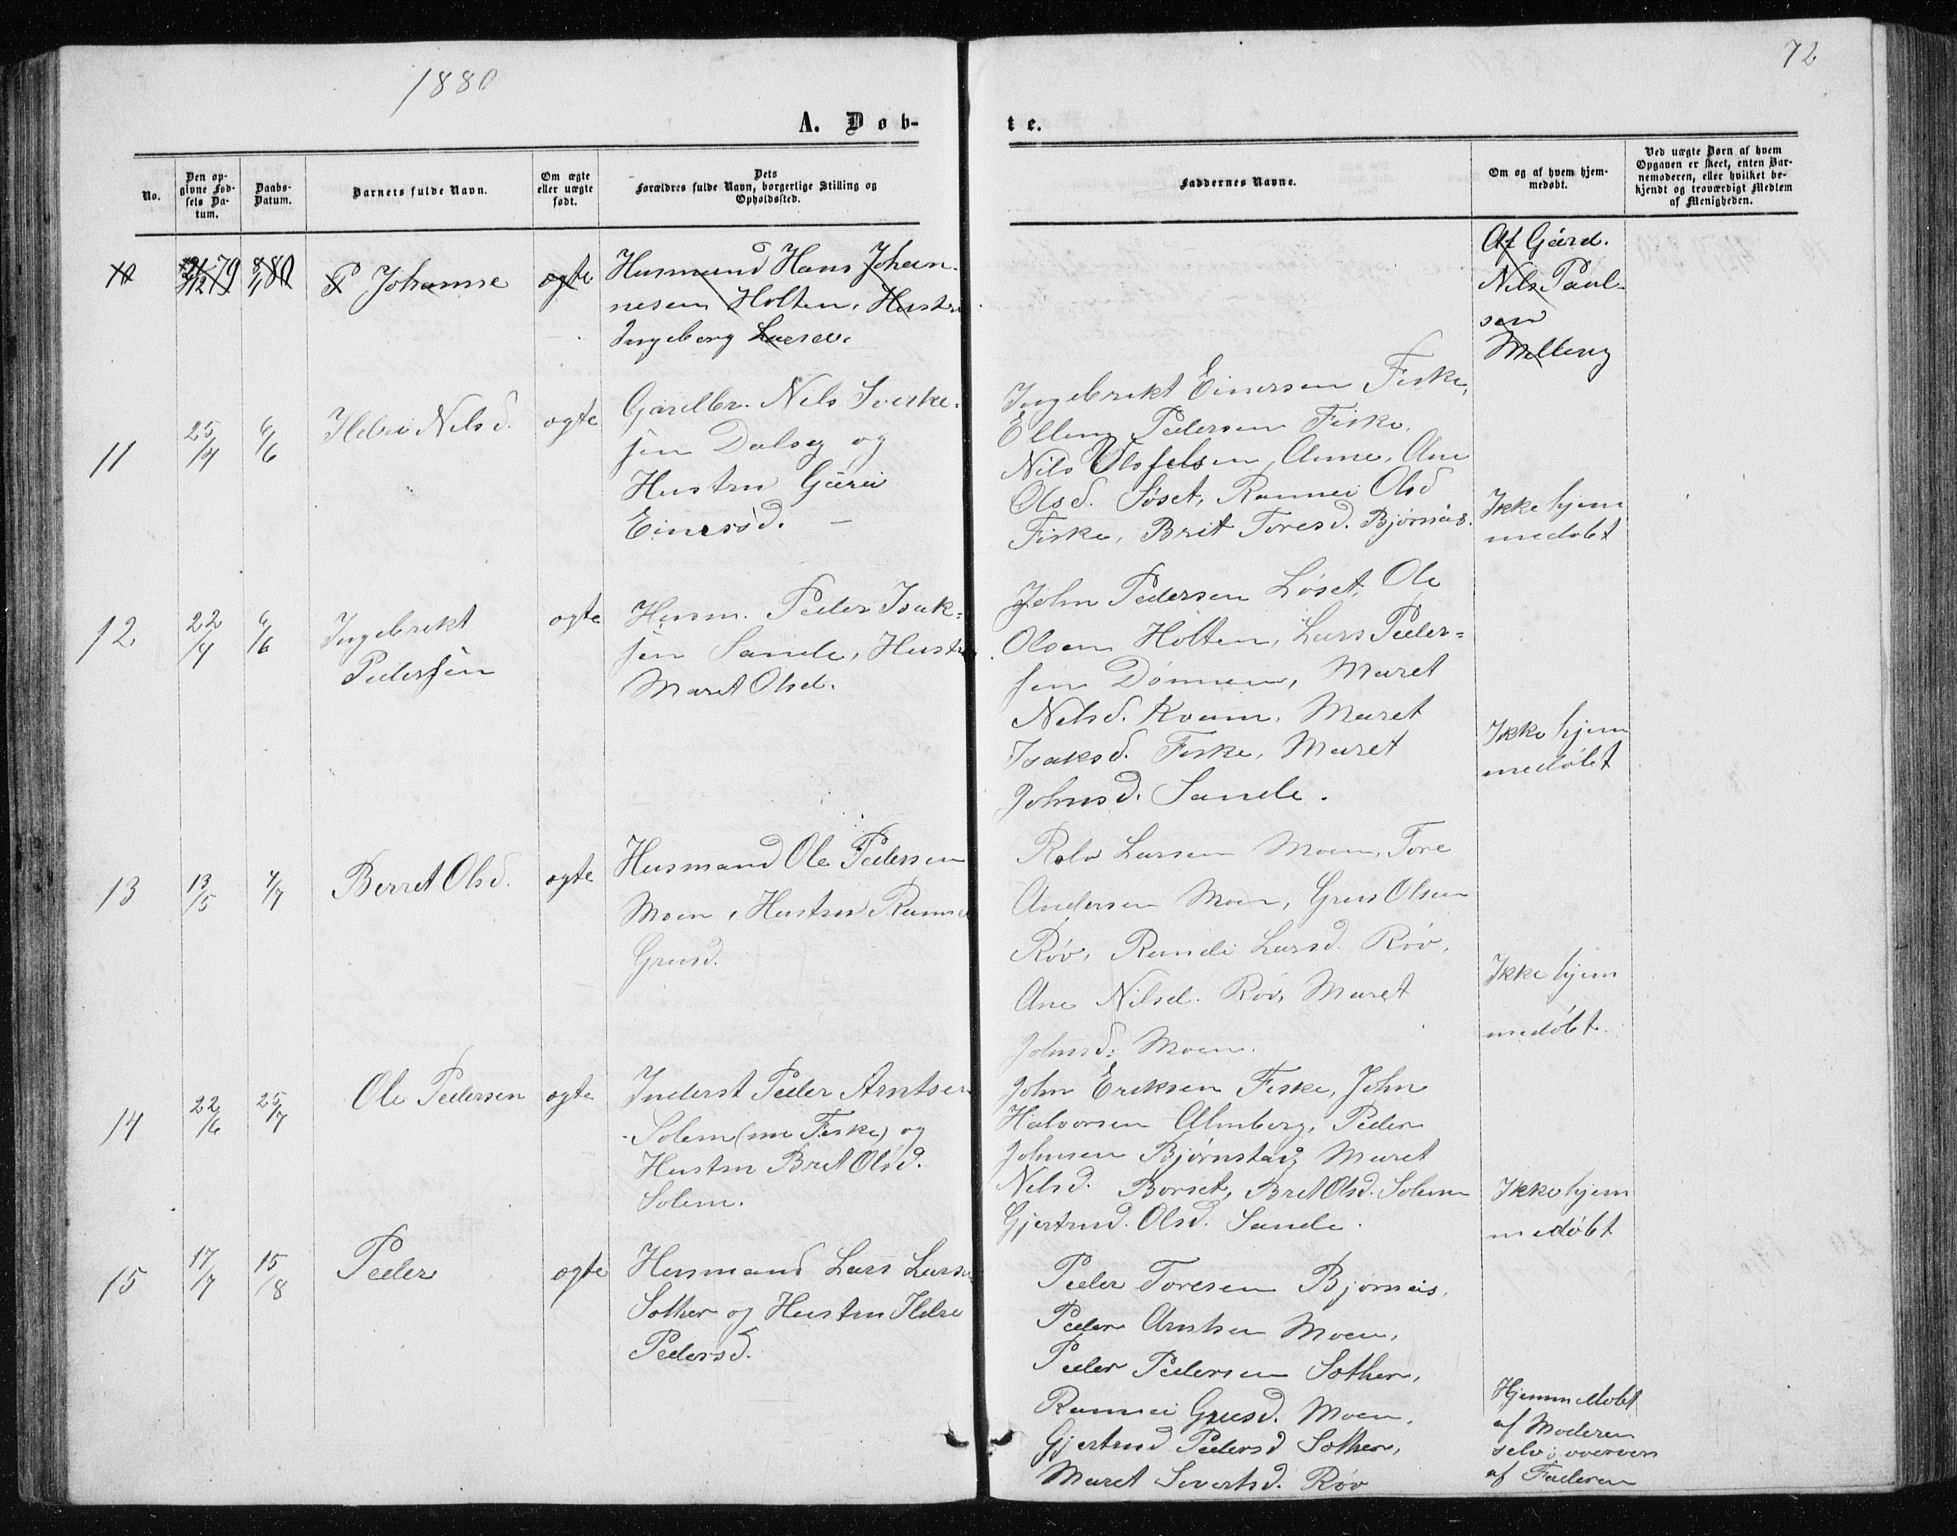 1880
72
A. Døb-
te.
No.
Den op-
givne Fød-
sels Da-
tum.
Daabs-
Datum.
Barnets fulde Navn.
Om ægte
eller uægte
født.
Dets
Forældres fulde Navn, borgerlige Stilling og
Opholdssted.
Faddernes Navne.
Om og af hvem hjem-
medøbt.
Ved uægte Børn af hvem
Opgaven er skeet, enten Bar-
nemoderen, eller hvilket be-
kjendt og troværdigt Medlem
af Menigheden.
10
79
80
P Johanne
ogte
Husmand Hans Johan-
nesen Holten, Hustru
Ingeborg Larsd.
Af Gård.
Nils Paul-
sen
Melling
11
25/4
6/6
Ildri Nilsd.
ogte
Gårdbr. Nils Sverke-
sen Dalsey og
Hustru Guri
Einersd.
Ingebrikt Einersen Fiske,
Elling Pedersen Fiske,
Nils Olsen Aune, Ane
Olsd. Søset, Rannei Olsd
Fiske, Brit Toresd. Bjørnås.
Ikke hjem
medøbt
12
22/4
6/6
Ingebrikt
Pedersen
ogte
Husm. Peder Isak-
sen Sande, Hustr
Maret Olsd.
John Pedersen Løset, Ole
Olsen Holten, Lars Peder-
sen Dønnem, Maret
Nilsd. Kvam, Maret
Isaksd. Fiske, Maret
Johnsd. Sande.
Ikke hjem
medøbt
13
13/5
4/7
Berret Olsd.
ogte
Husmand Ole Pedersen
Moen, Hustru Ranne
Grusd.
Rolv Larsen Moen, Tore
Andersen Moen, Grus Olsen
Røv, Randi Larsd. Røv,
Ane Nilsd. Røv, Maret
Johnsd. Moen.
Ikke hjem
medøbt
14
22/6
25/7
Ole Pedersen
ogte
Inderst Peder Arntsen
Solem (nu Fiske) og
Hustru Brit Olsd.
Solem.
John Eriksen Fiske, John
Halvorsen Almberg, Peder
Johnsen Bjørnstad, Maret
Nilsd. Borset, Brit Olsd. Solem
Gjertrud Olsd. Sande.
Ikke hjem
medøbt
15
17/7
15/8
Peder
ogte
Husmand Lars Larsen
Sother og Hustru Ildre
Pedersd.
Peder Toresen Bjørnås,
Peder Arntsen Moen,
Peder Pedersen Sother,
Rannei Grusd. Moen,
Gjertrud Pedersd Sother,
Maret Sivertsd. Røv
Hjemmedøbt
af Moderen
selv; overvær
af Faderen